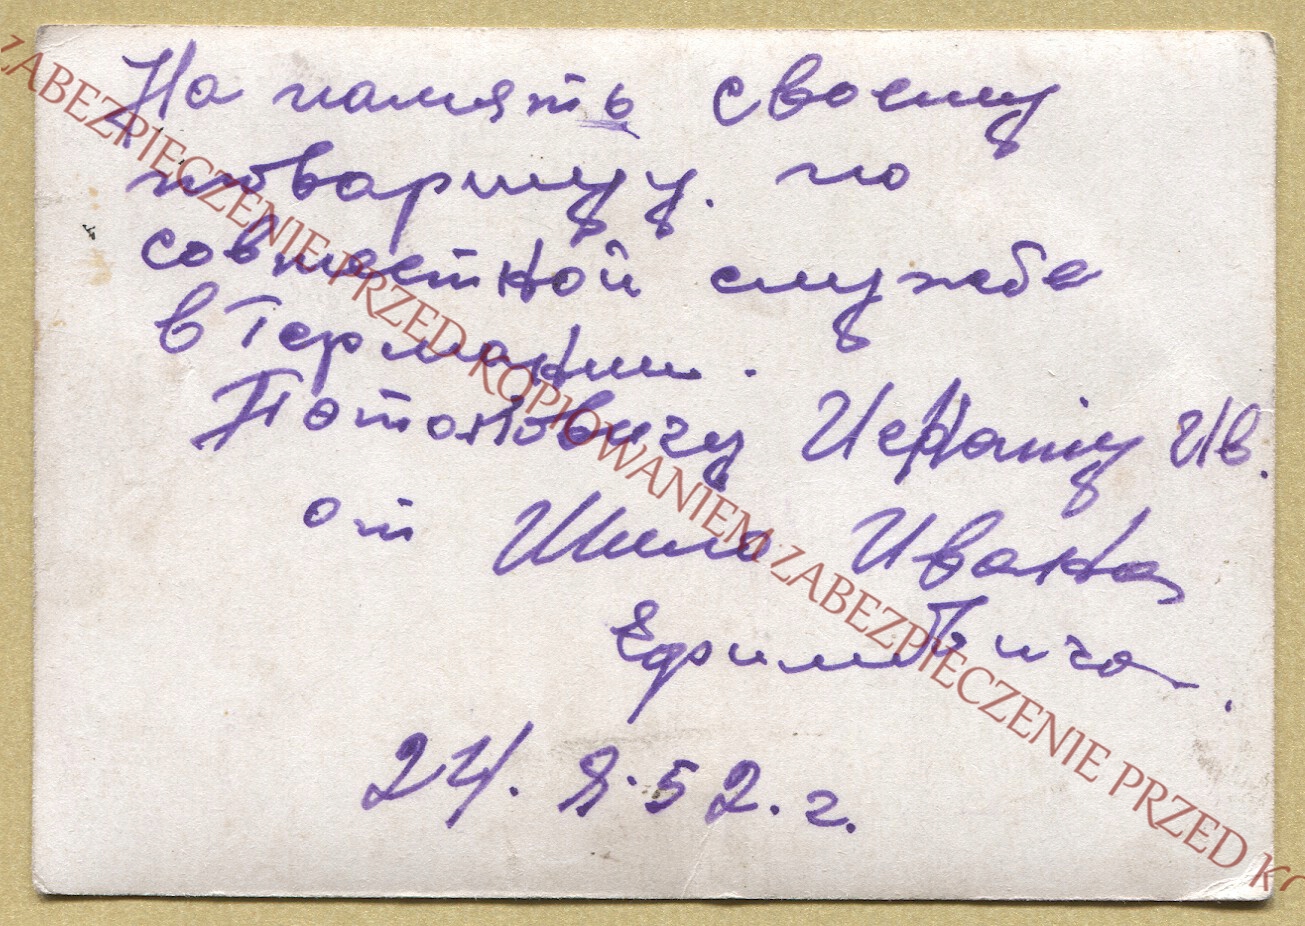 На память своему
товарищу. по
совместной службе
в Германии.
Ив.
от Шило Ивана
Ефимовича.
24. 8. 52. г.
ZABEZPIECZENIE PRZED KOPIOWANIEM ZABEZPIECZENIE PRZED KO